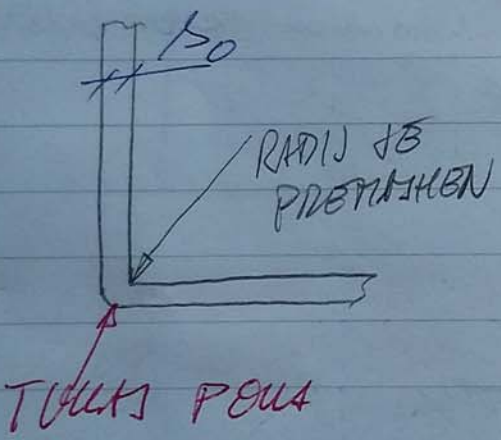 s₀
RADIJ JE
PREMAJHEN
TUKAJ POKA